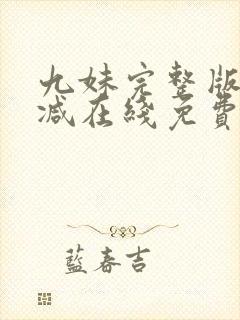 九妹完整版
减在綫免費
藍春吉